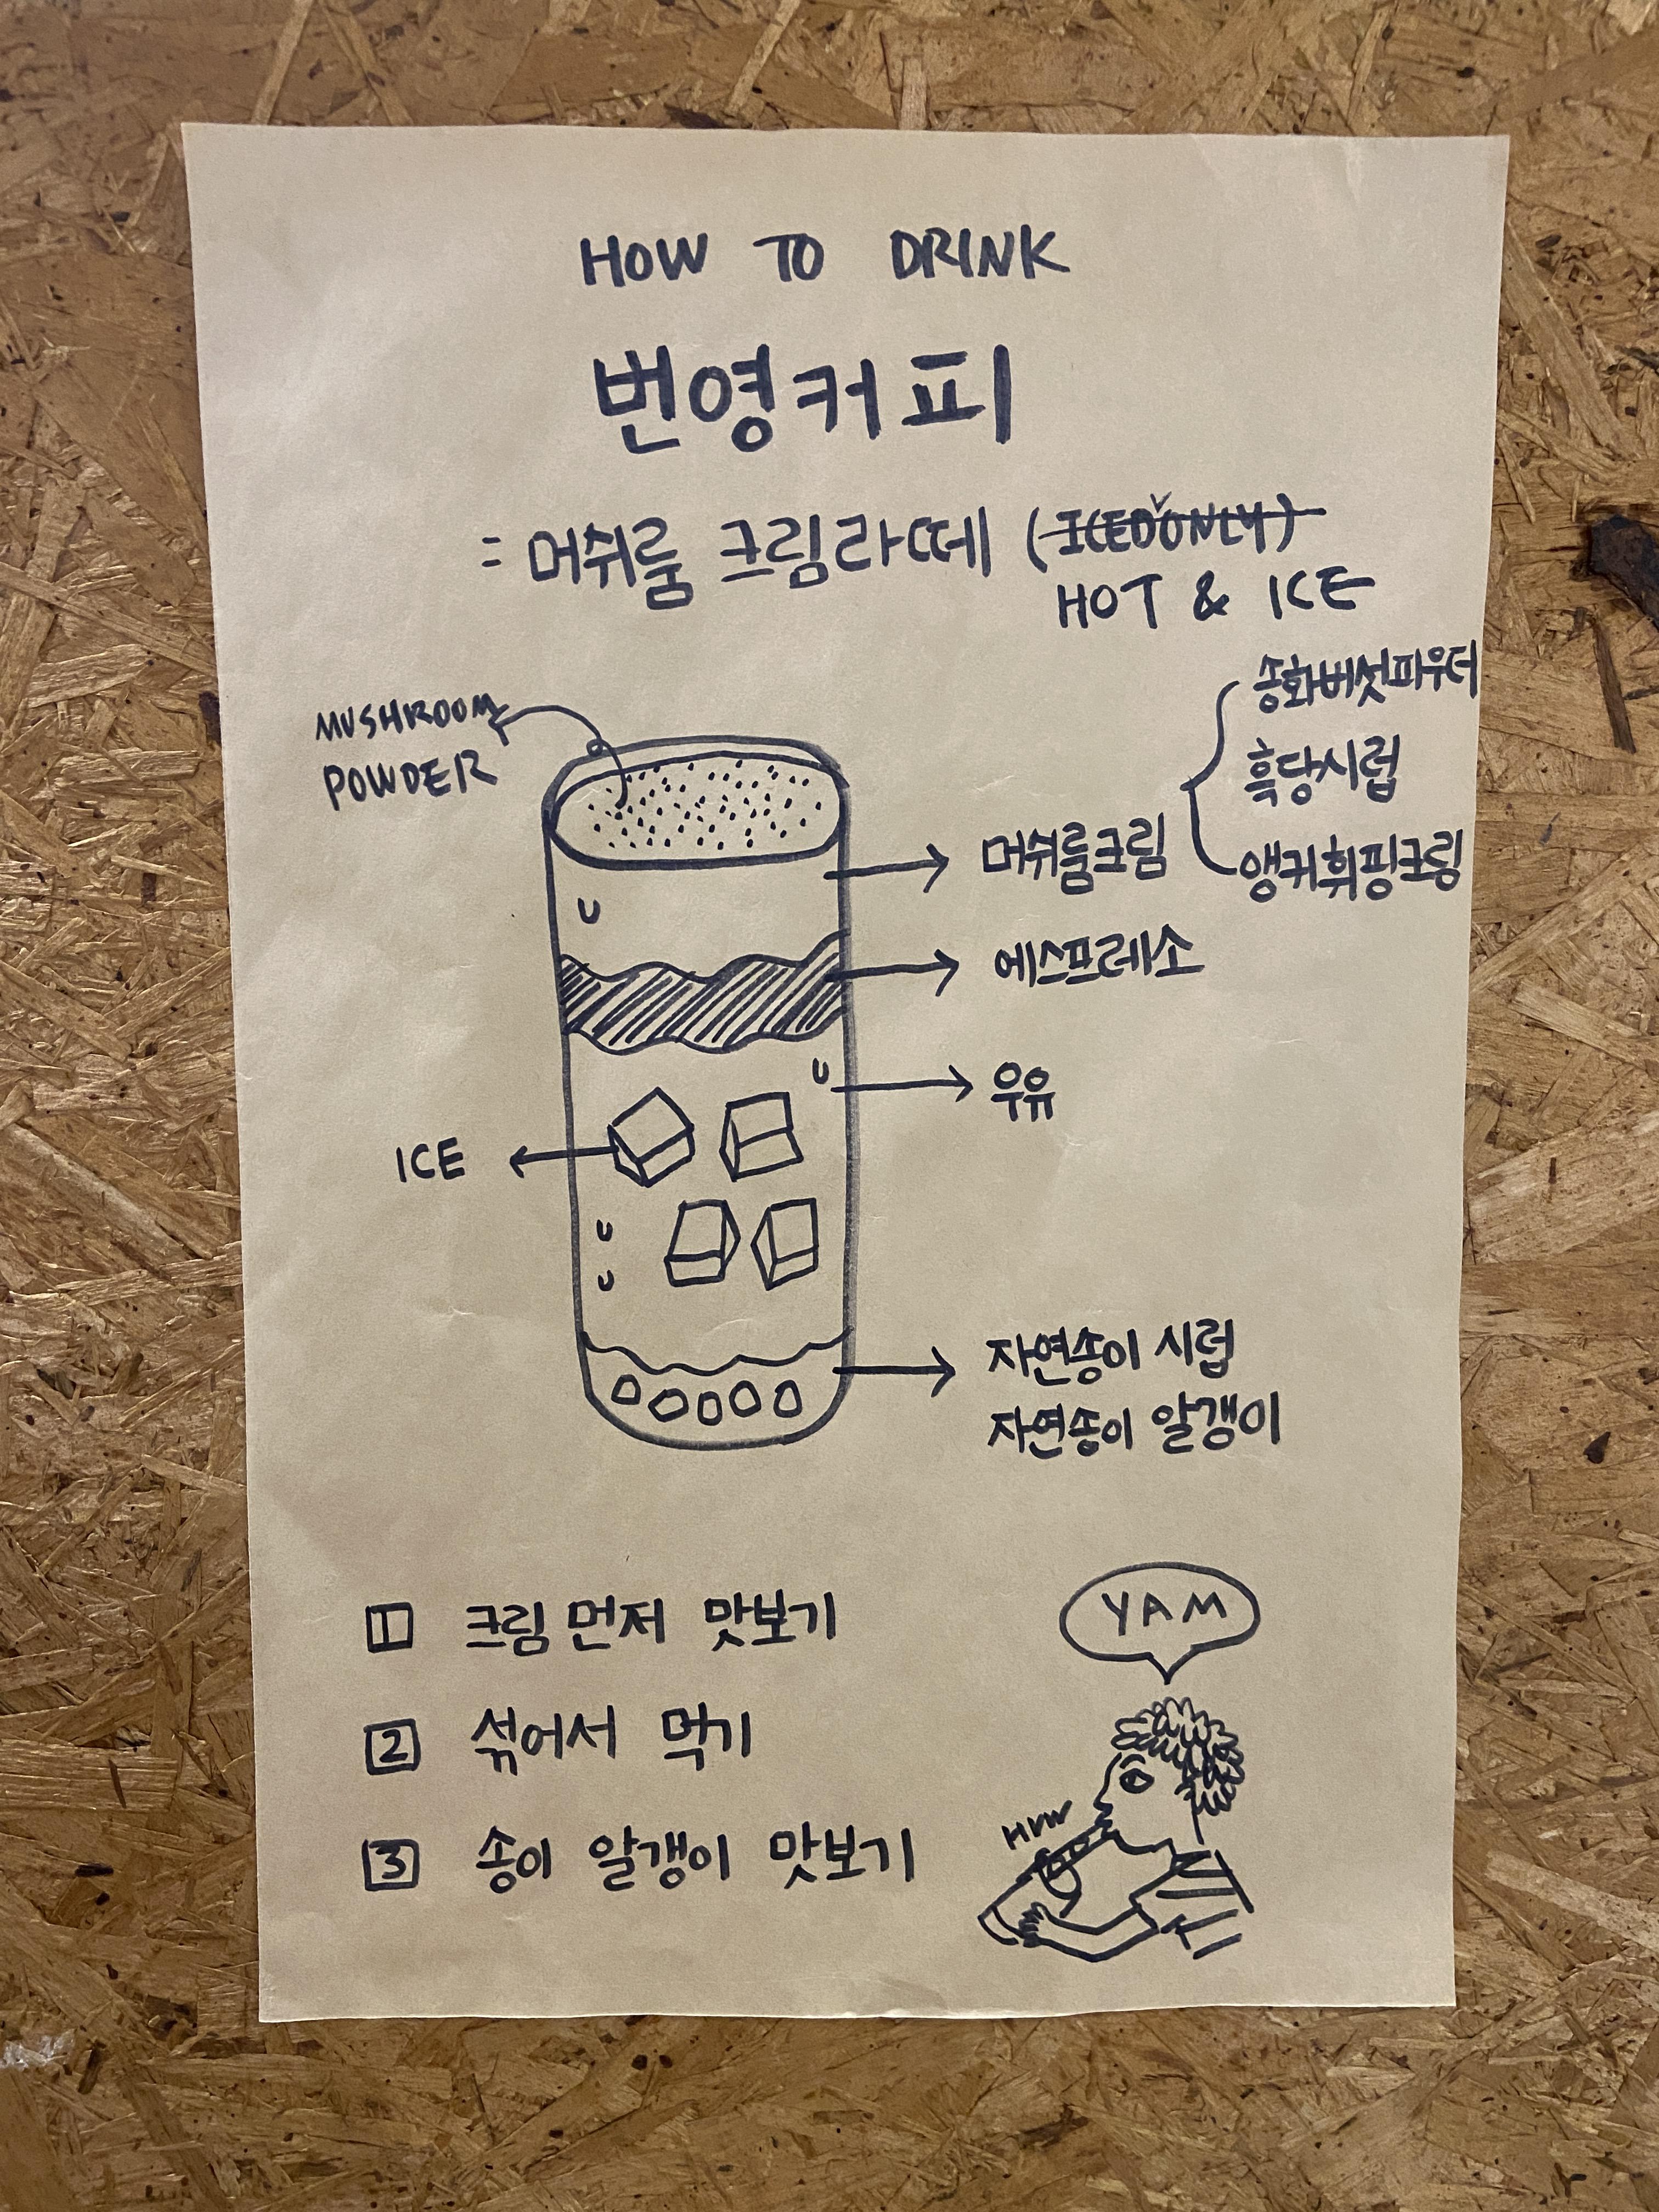 HOW TO DRINK
번영커피
= 머쉬룸 크림라떼 (ICED ONLY)
HOT & ICE
MUSHROOM
POWDER
송화버섯파우더
흑당시럽
앵커휘핑크림
머쉬룸크림
에스프레소
우유
ICE
자연송이 시럽
자연송이 알갱이
1 크림 먼저 맛보기
2 섞어서 먹기
3 송이 알갱이 맛보기
YAM